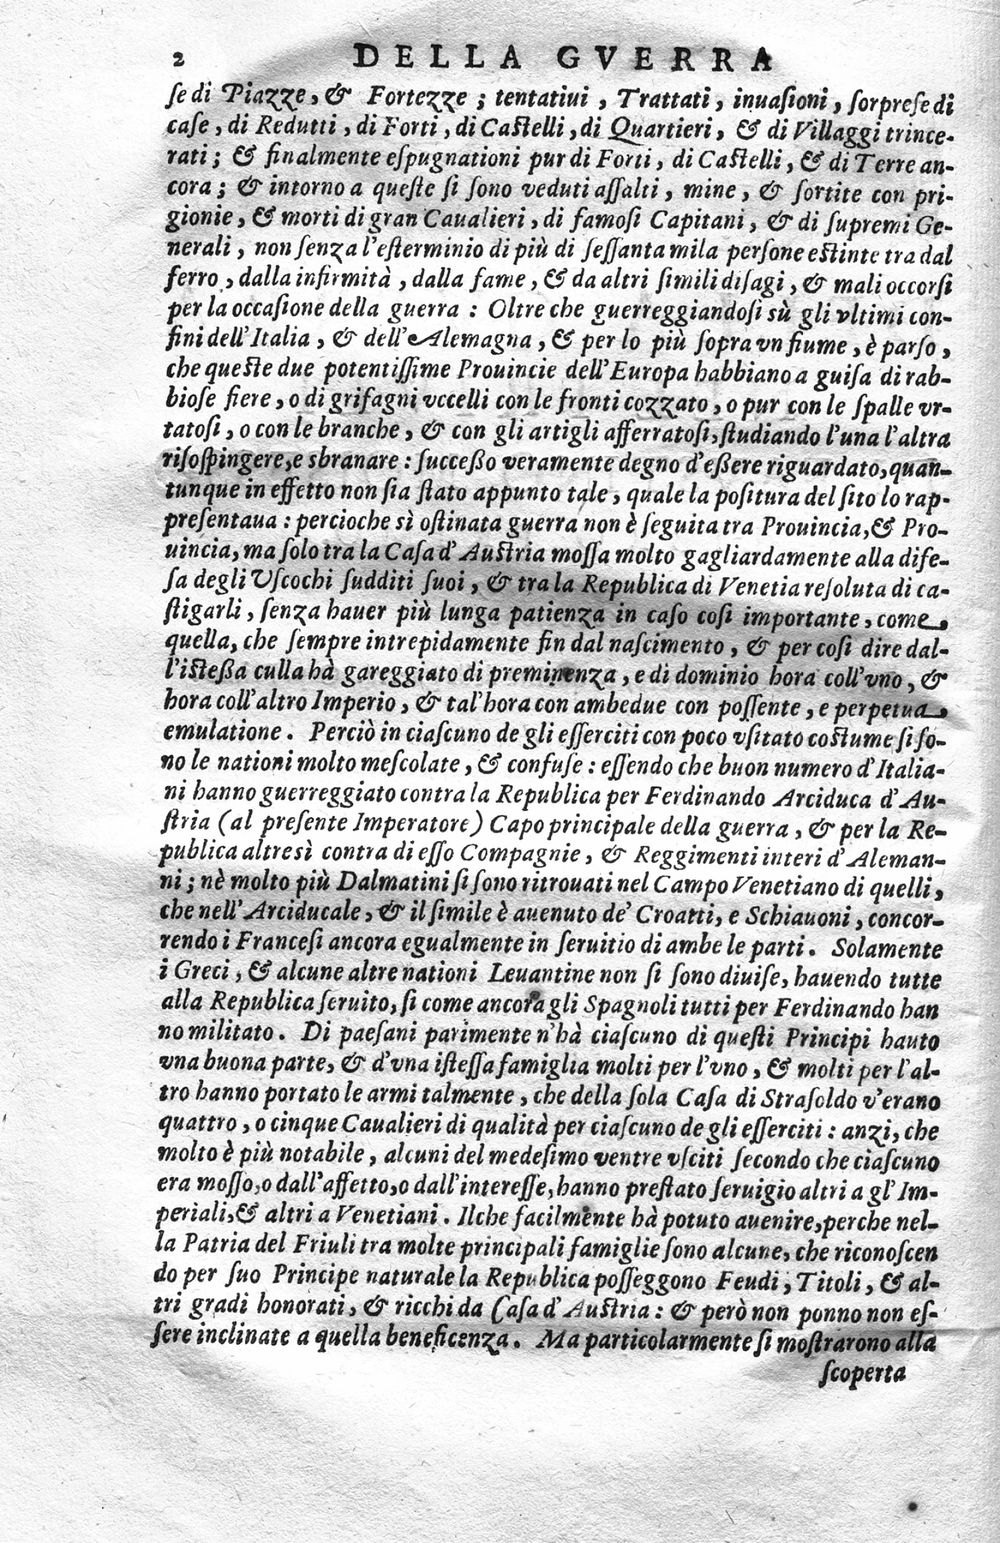 2 DELLA GVERRA
ſe di Piazze, & Fortezze; tentatiui, Trattati, inuaſioni, ſorpreſe di
caſe, di Redutti, di Forti, di Caſtelli, di Quartieri, & di Villaggi trince-
rati; & finalmente eſpugnationi pur di Forti, di Caſtelli, & di Terre an-
cora; & intorno a queſte ſi ſono veduti aſſalti, mine, & ſortite con pri-
gionie, & morti di gran Caualieri, di famoſi Capitani, & di ſupremi Ge-
nerali, non ſenza l'eſterminio di più di ſeſſanta mila perſone eſtinte tra dal
ferro, dalla infirmità, dalla fame, & da altri ſimili diſagi, & mali occorſi
per la occaſione della guerra: Oltre che guerreggiandoſi sù gli vltimi con-
fini dell'Italia, & dell'Alemagna, & per lo più ſopra vn fiume, è parſo,
che queſte due potentiſſime Prouincie dell'Europa habbiano a guiſa di rab-
bioſe fiere, o di grifagni vccelli con le fronti cozzato, o pur con le ſpalle vr-
tatoſi, o con le branche, & con gli artigli afferratoſi, ſtudiando l'una l'altra
riſoſpingere, e sbranare: ſucceſſo veramente degno d'eſſere riguardato, quan-
tunque in effetto non ſia ſtato appunto tale, quale la poſitura del ſito lo rap-
preſentaua: percioche sì oſtinata guerra non è ſeguita tra Prouincia, & Pro-
uincia, ma ſolo tra la Caſa d'Auſtria moſſa molto gagliardamente alla dife-
ſa degli Vſcochi ſudditi ſuoi, & tra la Republica di Venetia reſoluta di ca-
ſtigarli, ſenza hauer più lunga patienza in caſo coſi importante, come,
quella, che ſempre intrepidamente fin dal naſcimento, & per coſi dire dal-
l'iſteſſa culla hà gareggiato di preminenza, e di dominio hora coll'vno, &
hora coll'altro Imperio, & tal'hora con ambedue con poſſente, e perpetua,
emulatione. Perciò in ciaſcuno de gli eſſerciti con poco vſitato coſtume ſi ſo-
no le nationi molto meſcolate, & confuſe: eſſendo che buon numero d'Italia-
ni hanno guerreggiato contra la Republica per Ferdinando Arciduca d'Au-
ſtria (al preſente Imperatore) Capo principale della guerra, & per la Re-
publica altresì contra di eſſo Compagnie, & Reggimenti interi d'Aleman-
ni; nè molto più Dalmatini ſi ſono ritrouati nel Campo Venetiano di quelli,
che nell'Arciducale, & il ſimile è auenuto de' Croatti, e Schiauoni, concor-
rendo i Franceſi ancora egualmente in ſeruitio di ambe le parti. Solamente
i Greci, & alcune altre nationi Leuantine non ſi ſono diuiſe, hauendo tutte
alla Republica ſeruito, ſi come ancora gli Spagnoli tutti per Ferdinando han
no militato. Di paeſani parimente n'hà ciaſcuno di queſti Principi hauto
vna buona parte, & d'vna iſteſſa famiglia molti per l'vno, & molti per l'al-
tro hanno portato le armi talmente, che della ſola Caſa di Straſoldo v'erano
quattro, o cinque Caualieri di qualità per ciaſcuno de gli eſſerciti: anzi, che
molto è più notabile, alcuni del medeſimo ventre vſciti ſecondo che ciaſcuno
era moſſo, o dall'affetto, o dall'intereſſe, hanno preſtato ſeruigio altri a gl'Im-
periali, & altri a Venetiani. Ilche facilmente hà potuto auenire, perche nel-
la Patria del Friuli tra molte principali famiglie ſono alcune, che riconoſcen
do per ſuo Principe naturale la Republica poſſeggono Feudi, Titoli, & al-
tri gradi honorati, & ricchi da Caſa d'Auſtria: & però non ponno non eſ-
ſere inclinate a quella beneficenza. Ma particolarmente ſi moſtrarono alla
ſcoperta